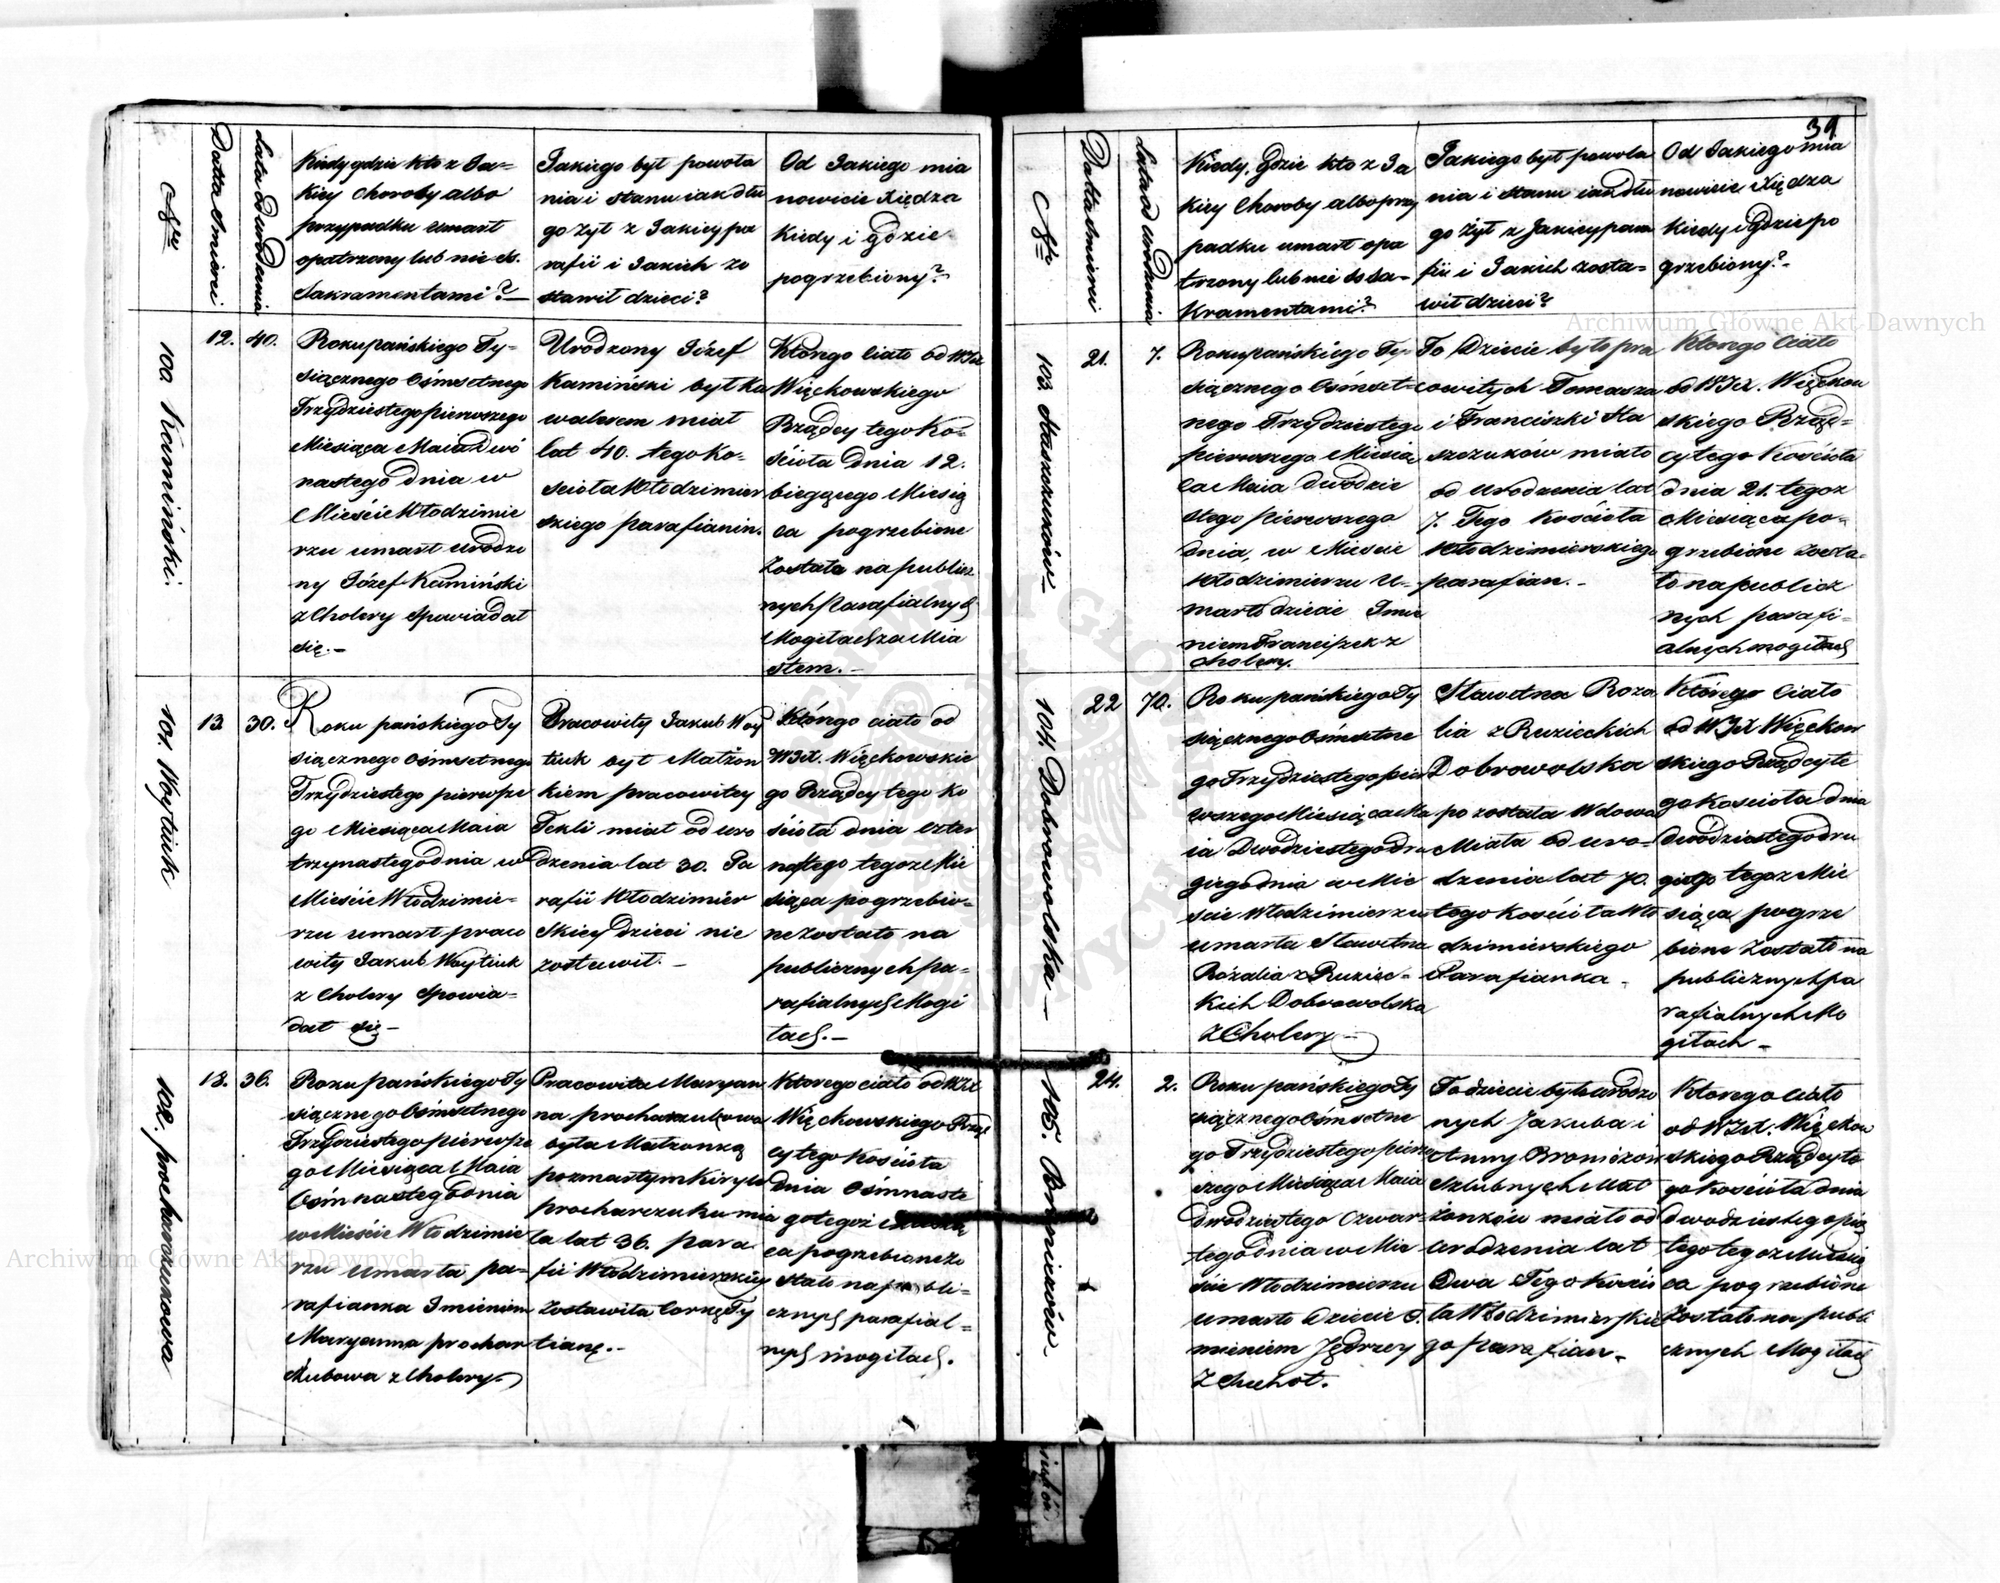 39
Nro
Datta Śmierci
Lata Od urodzenia
Kiedy gdzie kto z Ja=
kiey Choroby albo
przypadku umarł
opatrzony lub nie SS.
Sakramentami?—
Jakiego był powoła
nia i stanu iak dłu
go żył z Jakiey pa
rafii i Jakich zo
stawił dzieci?
Od Jakiego mia
nowicie Xiędza
Kiedy i gdzie
pogrzebiony?
100. Kamiński.
12.
40.
Roku pańskiego Ty=
siącznego Ośmsetnego
Trzydziestego pierwszego
Miesiąca Maia dwó
nastego dnia w
Mieście Włodzimie
rzu umarł urodzo
ny Józef Kamiński
z Cholery Spowiadał
się.—
Urodzony Józef
Kamiński był ka
walerem miał
lat 40. tego Ko=
ścioła Włodzimier
skiego parafianin.
Którego ciało od WJX
Więckowskiego
Rządcy tego Ko=
ścioła dnia 12.
biegącego Miesią
ca pogrzebione
zostało na publicz
nych Parafialnych
Mogiłach za Mia
stem.—
101. Woytiuk
13
30.
Roku pańskiego Ty
siącznego ośmsetnego
Trzydziestego pierwsze
go Miesiąca Maia
trzynastego dnia w
Mieście Włodzimie=
rzu umarł praco
wity Jakub Woytiuk
z Cholery Spowia=
dał się—
Pracowity Jakub Woy
tiuk był Małżon
kiem pracowitey
Tekli miał od uro
dzenia lat 30. Pa
rafii Włodzimier
Skiey dzieci nie
zostawił.—
Którego ciało od
WJX. Więckowskie
go Rządcy tego ko
ścioła dnia czter
nastego tegoż Mie
siąca pogrzebio=
ne zostało na
publicznych pa=
rafialnych Mogi
łach.—
102. procharczukowa
18.
36.
Roku pańskiego Ty
siącznego Ośmsetnego
Trzydziestego pierwsze
go Miesiąca Maia
Ośmnastego dnia
w Mieście Włodzimie
rzu umarła pa=
rafianka Imieniem
Maryanna prochar
czukowa z Cholery
Pracowita Maryan
na procharczukowa
była Małżonką
pozmarłym Kiryło
procharczuku mia
ła lat 36. para
fii Włodzimierskiey
zostawiła Corkę Ty
tianę.—
Ktorego ciało od WJX
Więckowskiego Rząd
cy tego Kościoła
dnia Ośmnaste
go tegoż Miesią
ca pogrzebione zo
stało na publi=
cznych parafial=
nych mogiłach.
Nro
Datta Śmierci
Lata od urodzenia
Kiedy, Gdzie kto z Ja
kiey Choroby albo przy
padku umarł opa
trzony lub nie SS Sa=
kramentami?
Jakiego był powoła
nia i stanu iak dłu
go żył z Jakiey para
fii i Jakich zosta=
wił dzieci?
Od Jakiego mia
nowicie Xiędza
Kiedy i Gdzie po
grzebiony?—
103. Staszczuków—
21.
7.
Roku pańskiego Ty
siącznego Ośmset=
nego Trzydziestego
pierwszego Miesią
ca Maia dwódzie
stego pierwszego
dnia, w Mieście
Włodzimierzu U=
marło dziecie Imie
niem Franciszek z
Cholery.
To Dziecie było pra
cowitych Tomasza
i Franciszki Sta
szczuków miało
od urodzenia lat
7. Tego Kościoła
Włodzimierskiego
parafian.—
Którego Ciało
od WJX. Więckow
skiego Rząd=
cy tego Kościoła
dnia 21. tegoż
Miesiąca po=
grzebione zosta=
ło na publicz
nych parafi=
alnych mogiłach
104. Dobrowolska—
22
70.
Roku pańskiego Ty
siącznego Ośmsetne
go Trzydziestego pier
wszego Miesiąca Ma
ia Dwódziestego dru
giego dnia w Mie
ście Włodzimierzu
umarła Sławetna
Rozalia z Ruziec=
kich Dobrowolska
z Cholery—
Sławetna Roza
lia z Ruzieckich
Dobrowolska
po została Wdowa
Miała od uro=
dzenia lat 70.
tego Kościoła Wło
dzimierskiego
Parafianka.
Którego Ciało
od WJX Więckow
skiego Rządcy te
go Kościoła dnia
dwódziestego dru
giego tegoż Mie
siąca pogrze
bione zostało na
publicznych pa
rafialnych Mo
giłach—
105. Broniczów
24.
2.
Roku pańskiego Ty
siącznego Ośmsetne
go Trzydziestego pierw
szego Miesiąca Maia
dwódziestego Czwar=
tego dnia w Mie
ście Włodzimierzu
umarło Dziecie I.
mieniem Jędrzey
z Suchot.
To dziecie było urodzo
nych Jakuba i
Anny Broniczow
szlubnych Mał
żonków miało od
urodzenia lat
Dwa Tego Kościo
ła Włodzimierskie
go Parafian.
Ktorego Ciało
od WJX. Więckow
skiego Rządcy te
go Kościoła dnia
dwódziestego pią
tego tegoż Miesią
ca pogrzebione
zostało na publi
cznych Mogiłach
Archiwum Główne Akt Dawnych
Archiwum Główne Akt Dawnych